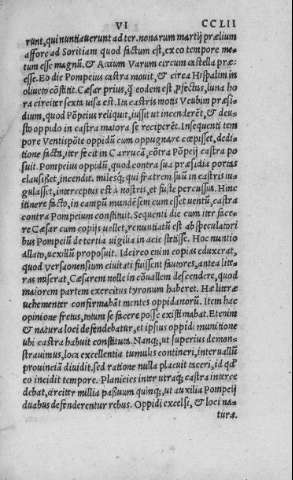 VI CCLII
runt, qui nuntiauerunt ad ter. nonarum martij prælium
affore ad Soritiam quod factum est, ex eo tempore me=
tum esse magnū, & Actium Varum circum castella præ=
esse. Eo die Pompeius castra mouit, & circa Hispalim in
oliueto cōstitit. Cæsar prius, q̄ eodem est Pfectus, luna ho
ra circiter sexta uisa est. Ita castris motis Vcubim præsi=
dium, quod Pōpeius reliquit, iussit ut incenderēt, & deu=
sto oppido in castra maiora se reciperēt. Insequenti tem
pore Ventispōte oppidū cum oppugnare cœpisset, dedi=
tione facta, iter fecit in Carrucā, cōtra Pōpeiū castra po
suit. Pompeius oppidū, quod contra sua præsidia portas
clausisset, incendit. milesq; qui fratrem suū in castris iu=
gulasset, interceptus est à nostris, et fuste percussus. Hinc
itinere facto, in campū mundēsem cum esset uentū, castra
contra Pompeium constituit. Sequenti die cum iter face=
re Cæsar cum copijs uellet, renuntiatū est ab speculatori
bus Pompeiū de tertia uigilia in acie stetisse. Hoc nuntio
allato, uexillū proposuit. Idcirco enim copias eduxerat,
quod ursaonensium ciuitati fuissent fautores, antea litte=
ras miserat, Cæsarem nolle in cōuallem descendere, quod
maiorem partem exercitus tyronum haberet. Hæ litteræ
uehementer confirmabāt mentes oppidanorū. Item hac
opinione fretus, totum se facere posse existimabat. Etenim
& natura loci defendebatur, et ipsius oppidi munitione
ubi castra habuit constituta. Nanq; ut superius demon=
strauimus, loca excellentia tumulis contineri, interuallū
prouinciā diuidit. sed ratione nulla placuit taceri, id qd'
eo incidit tempore. Planicies inter utraq; castra interce
debat, circiter millia passuum quinq; ut auxilia Pompeij
duabus defenderentur rebus. Oppidi excelsi, & loci na=
turæ.